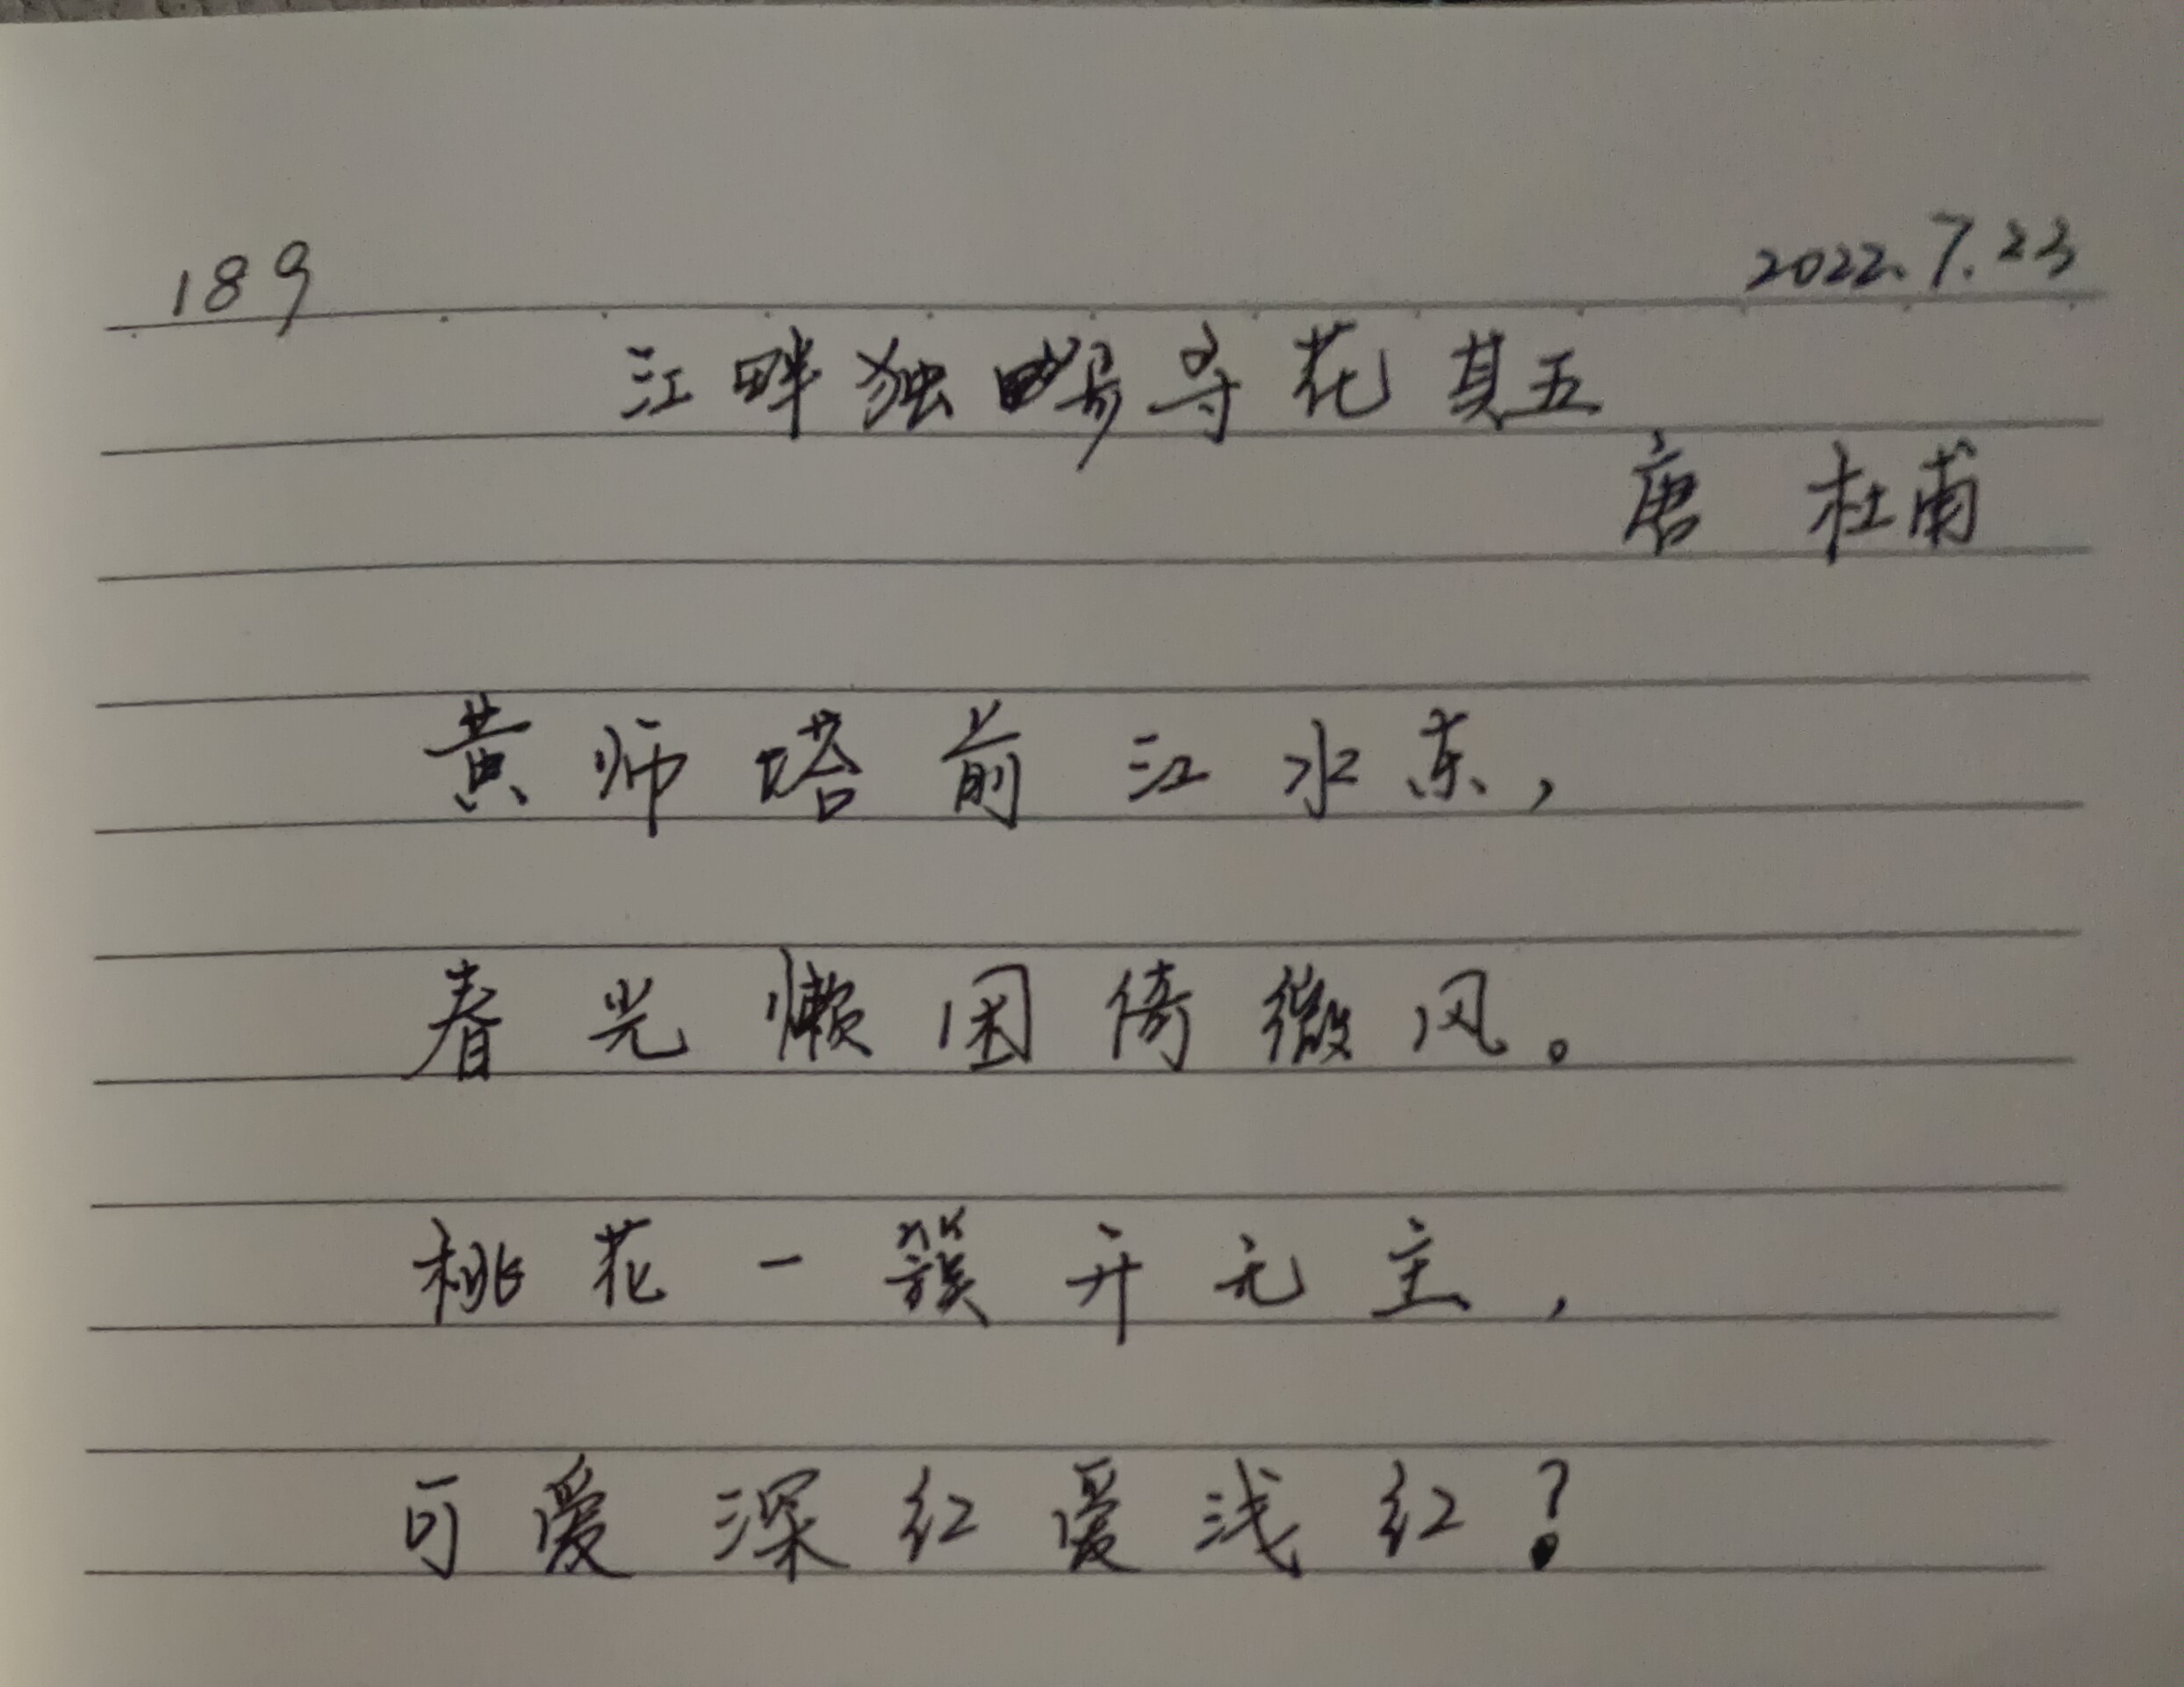 189
2022.7.23
江畔独寻花其五
唐 杜甫
黄师塔前江水东，
春光懒困倚微风。
桃花一簇开无主，
可爱深红爱浅红？